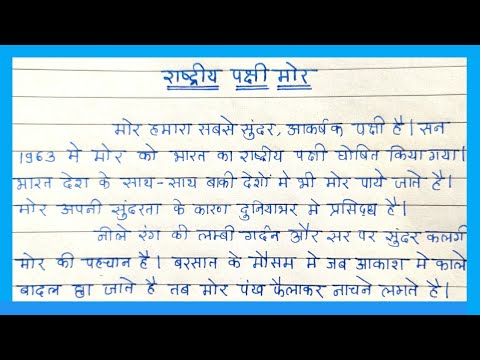 राष्ट्रीय पक्षी मोर
मोर हमारा सबसे सुंदर, आकर्षक पक्षी है। सन
1963 मे मोर को भारत का राष्ट्रीय पक्षी घोषित किया गया।
भारत देश के साथ-साथ बाकी देशों मे भी मोर पाये जाते है।
मोर अपनी सुंदरता के कारण दुनियाभर मे प्रसिद्ध है।
नीले रंग की लम्बी गर्दन और सर पर सुंदर कलगी
मोर की पहचान है। बरसात के मौसम मे जब आकाश मे काले
बादल छा जाते है तब मोर पंख फैलाकर नाचने लगते है।